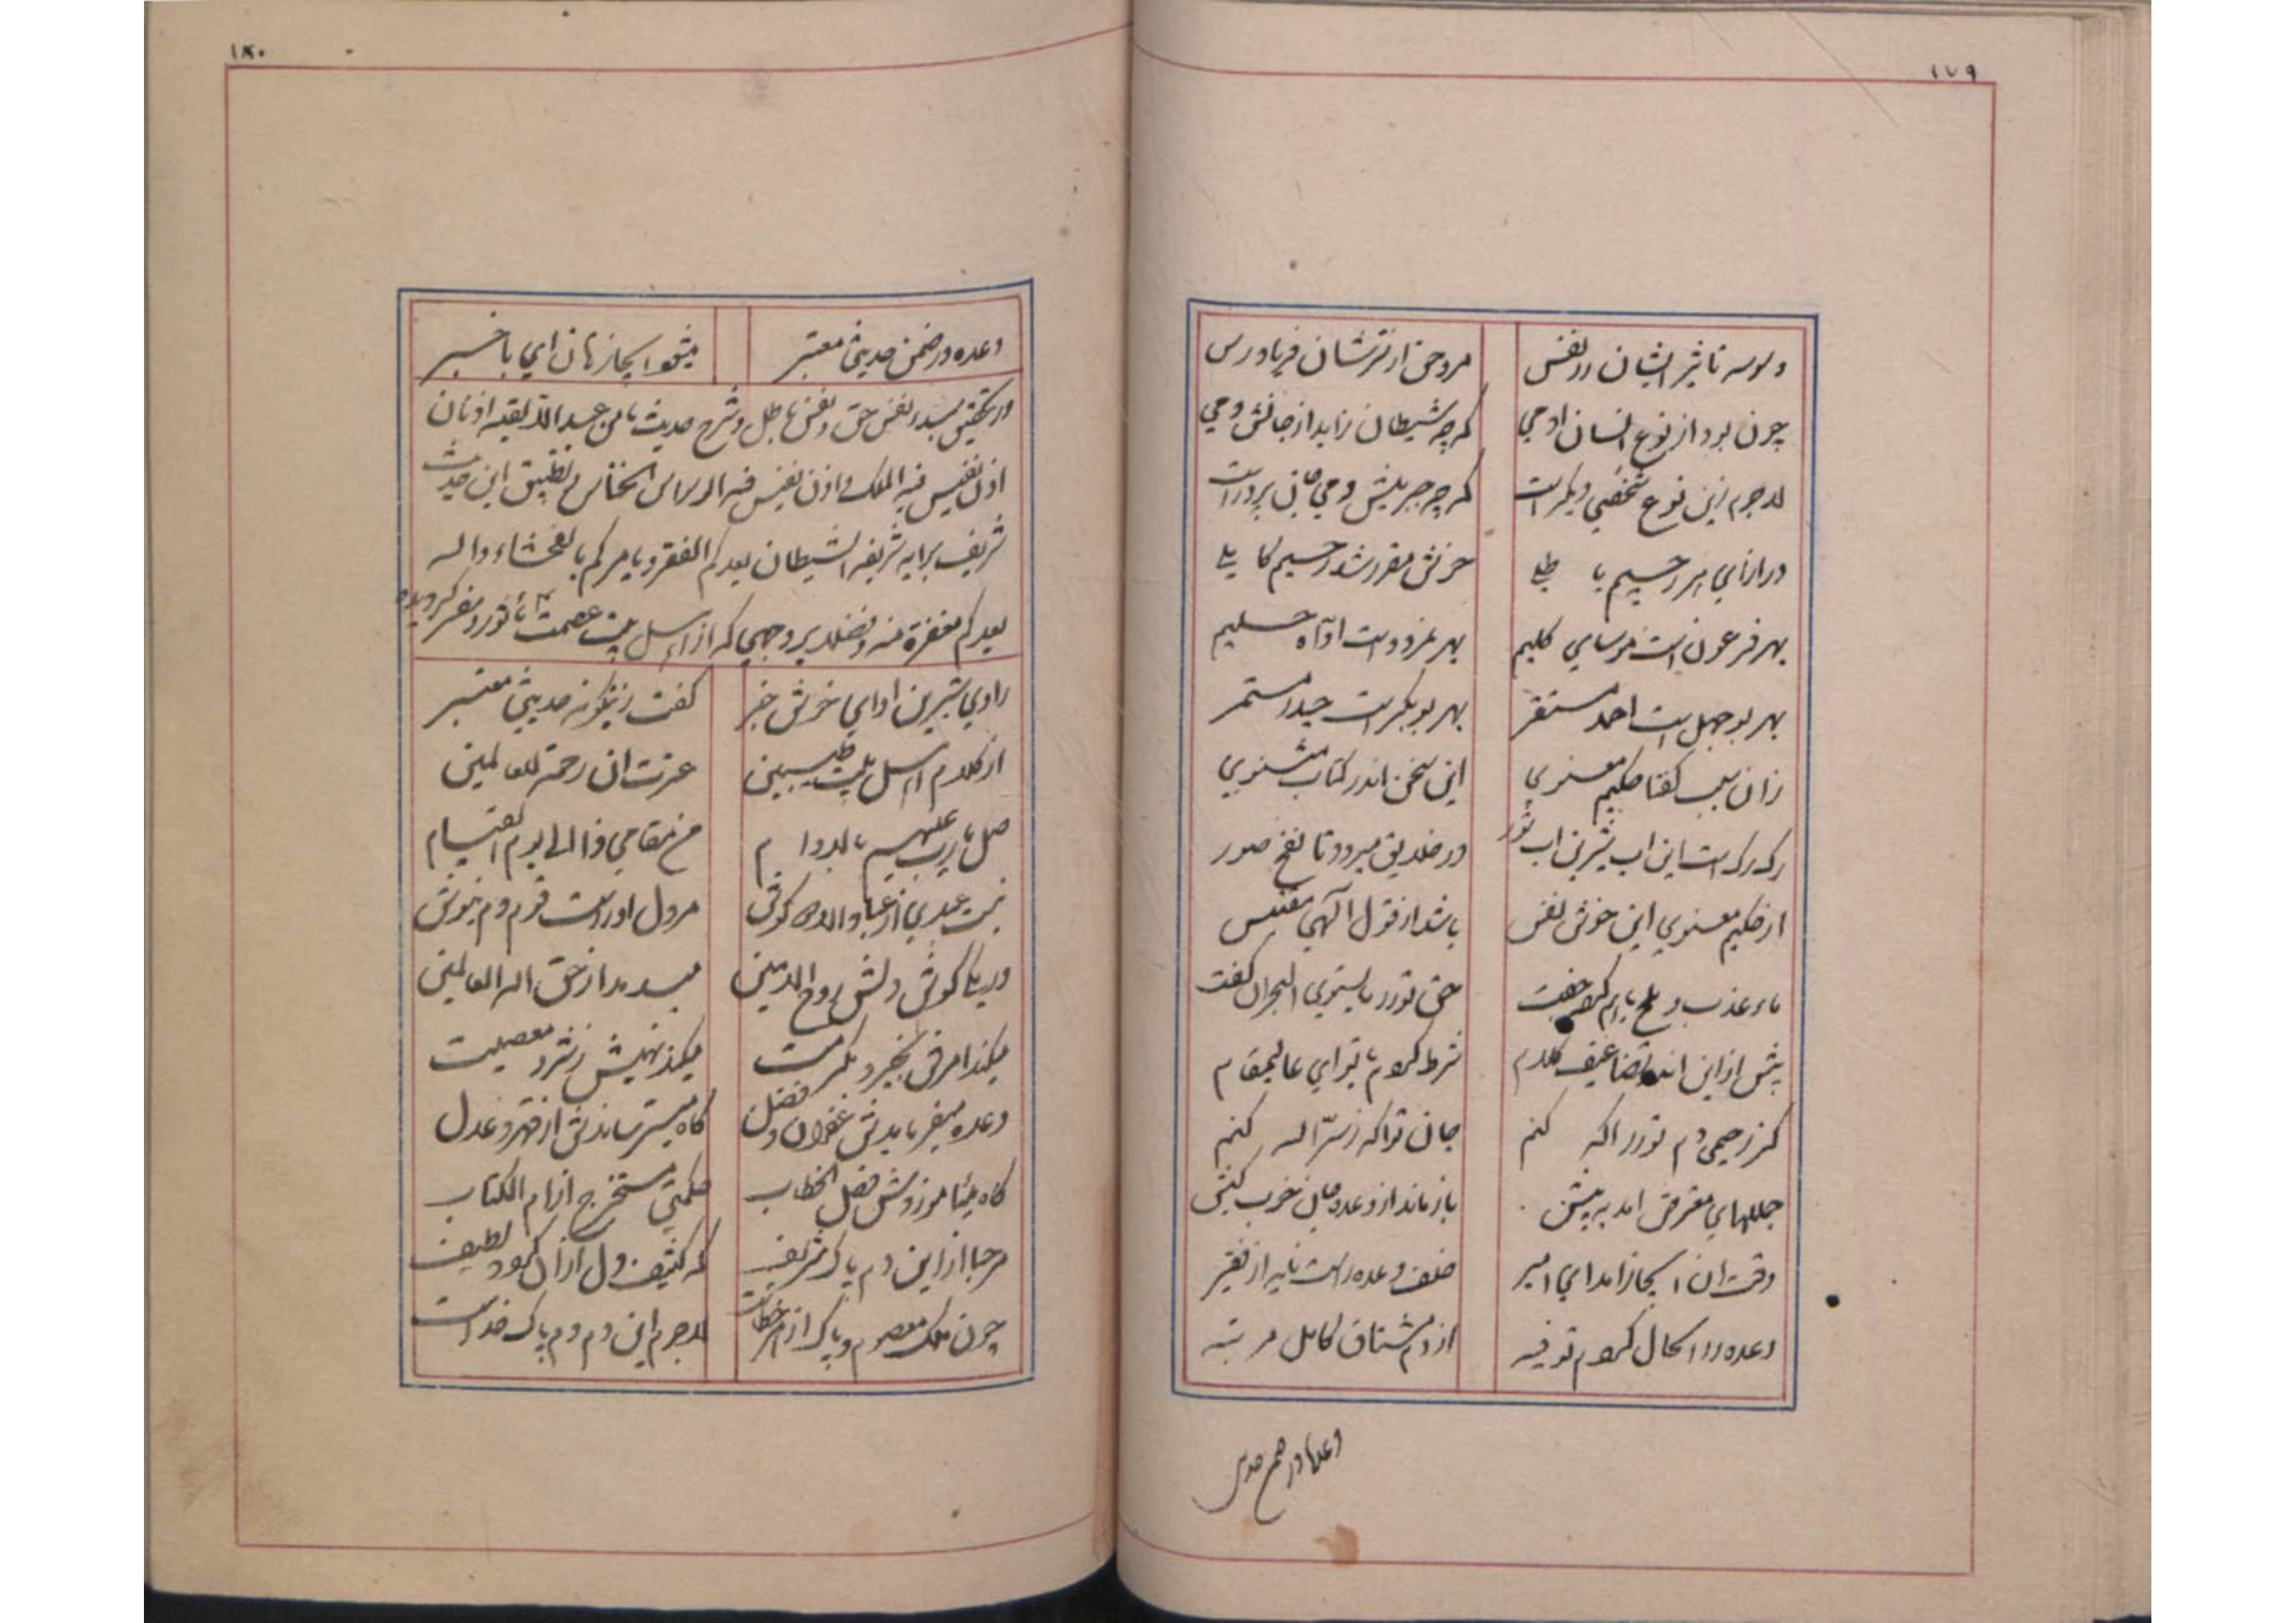 ١٧٩
وسوسه تاثیر ایشان در نفس
مر وحی از شرشان فریادرس
چون بود از نوع انسان آدمی
گرچه شیطان زاید از جانش دمی
لاجرم زین نوع شخصی دیگر است
گرچه جبریلش دمی جان پرور است
در ازای هر رحیم باطلی
حق مقرر شد رحیم کاملی
بهر فرعون است موسای کلیم
بهر نمرود است اواه حلیم
بهر بوجهل است احمد مستقر
بهر بوبکر است حیدر مستمر
زان سبب گفتا حکیم معنوی
این سخن اندر کتاب مثنوی
رک رک است این آب شیرین آب شور
در خلایق میرود تا نفخ صور
از حکیم معنوی این خوش نفس
باشد از قول الهی مقتبس
ماء عذب و ملح باهم کرد جفت
حق تو را لا یستوی البحران گفت
پیش از این اندر تضاعیف کلام
شرط کردم با تو ای عالیمقام
کز رحیمی دم تو را آگه کنم
جان تو آگه ز سر اله کنم
جملهای معترض آمد به پیش
باز ماند از وعده جان خوب کیش
وقت آن انجاز آمد ای امیر
خلف وعده راست ناید از فقیر
وعده در انحال کردم توفیه
از دم مشتاق کامل مرتبه
وعده در ضمن حدیثی
١٨٠
وعده در ضمن حدیثی معتبر
میشود انجاز هان ای باخبر
در تحقیق مبدء نفس حق و نفس باطل و شرح حدیث ما من عبد الا لقلبه اذنان
اذن نفس فیه الملک و اذن نفس فیه الوسواس الخناس و تطبیق این حدیث
شریف بر آیه شریفه الشیطان یعدکم الفقر و یأمرکم بالفحشاء والله
یعدکم مغفرة منه و فضلا بر وجهی که از اهل بیت عصمت مأثور و مفسر گردیده
راوی شیرین ادای خوش خبر
گفت زینگونه حدیثی معتبر
از کلام اهل بیت طیبین
عترت آن رحمة للعالمین
صل یا رب علیهم بالدوام
من مقامی ذا الی یوم القیام
نیست عبدی از عباد الا دو گوش
مر دل او راست قرم و دم نیوش
در یکی گوش دلش روح الامین
میدمد از حق اله العالمین
میکند امرش بخیر و مکرمت
میکند نهیش ز شر و معصیت
وعده میفرمایدش غفران و فضل
گاه میترساندش از قهر و عدل
گاه میآموزدش فصل الخطاب
حکمتی مستخرج از ام الکتاب
مرحبا از این دم پاک شریف
که کثیف دل از آن گردد لطیف
چون ملک معصوم و پاک از هر خطاست
لاجرم این دم دم پاک خداست